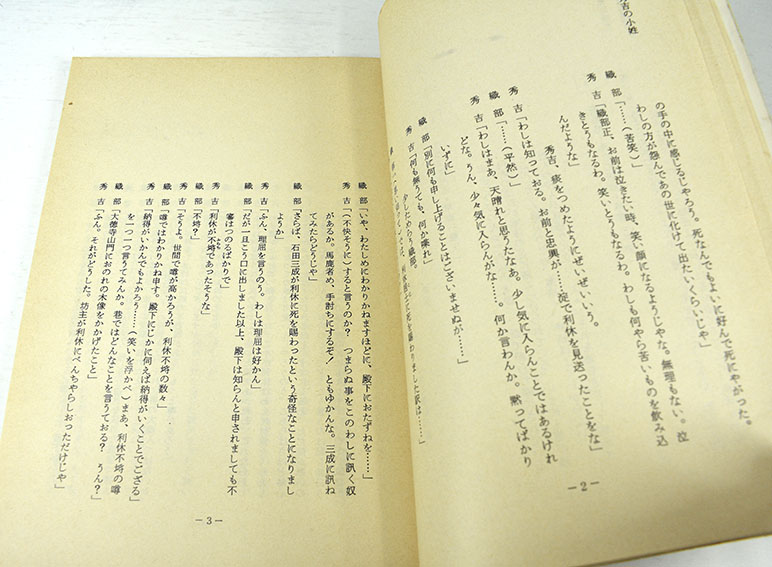 秀吉の小姓
の手の中に感じるじやろう。死なんでもよいに好んで死にやがった。
わしの方が怨んであの世に化けて出たいくらいじや」
織　部「……(苦笑)」
秀　吉「織部正、お前は泣きたい時、笑い顔になるようじやな。無理もない。泣
きとうもなるわ。笑いとうもなるわ。わしも何やら苦いものを飲み込
んだような」
秀吉、痰をつめたようにぜいぜいいう。
秀　吉「わしは知っておる。お前と忠興が……淀で利休を見送ったことをな」
織　部「……(平然)」
秀　吉「わしはまあ、天晴れと思うたなあ。少し気に入らんことではあるけれ
どな。うん、少々気に入らんがな……。何か言わんか。黙ってばかり
いずに」
織　部「別に何も申し上げることはございませぬが……」
秀　吉「何も無うても、何か喋れ」
少しためらう織部。
死を賜わりました訳は……」
—2—
織　部「いや、わたしめにわかりかねますほどに、殿下におたずねを……」
秀　吉「(不快そうに)すると言うのか？　つまらぬ事をこのわしに訊く奴
があるか。馬鹿者め、手討ちにするぞ！　ともゆかんな。三成に訊ね
てみたらどうじや」
織　部「さらば、石田三成が利休に死を賜わったという奇怪なことになりまし
ようか」
秀　吉「ふん、理屈を言うのう。わしは理屈は好かん」
織　部「だが一旦こう口に出しました以上、殿下は知らんと申されましても不
審はつのるばかりで」
秀　吉「利休が不埒であったそうな」
織　部「不埒？」
秀　吉「そうよ、世間で噂が高かろうが、利休不埒の数々」
織　部「噂ではわかりかね申す。殿下にじかに伺えば納得がいくことでござる」
秀　吉「納得がいかんでもよかろう……(笑いを浮かべ)まあ、利休不埒の噂
を一つ一つ言うてみんか。巷ではどんなことを言うておる？　うん？」
織　部「大徳寺山門におのれの木像をかかげたこと」
秀　吉「ふん。それがどうした。坊主が利休にべんちやらしおっただけじや」
—3—